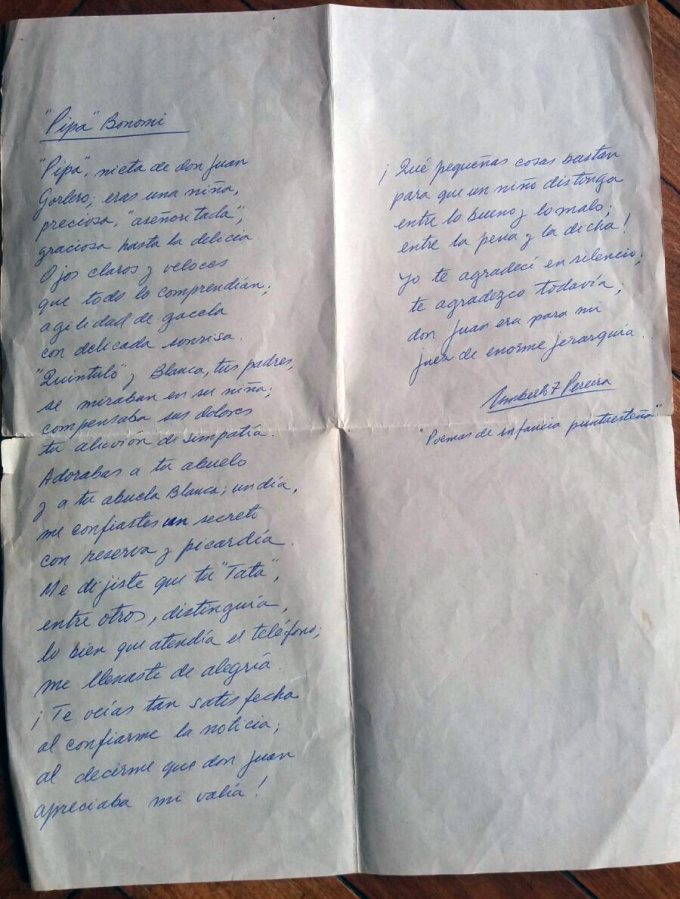 "Pipa" Bonomi
"Pipa", nieta de don Juan
Gorlero; eras una niña,
preciosa, "aseñoritada";
graciosa hasta la delicia
Ojos claros y veloces
que todo lo comprendían;
agilidad de gacela
con delicada sonrisa.
"Quintuló" y Blanca, tus padres,
se miraban en su niña;
compensaba sus dolores
tu aluvión de simpatía.
Adorabas a tu abuelo
y a tu abuela Blanca; un día,
me confiastes un secreto
con reserva y picardía.
Me dijiste que tu "Tata",
entre otros, distinguía,
lo bien que atendía el teléfono;
me llenaste de alegría.
¡Te veías tan satisfecha
al confiarme la noticia;
al decirme que don Juan
apreciaba mi valía!
¡Qué pequeñas cosas bastan
para que un niño distinga
entre lo bueno y lo malo;
entre la pena y la dicha!
Yo te agradecí en silencio;
te agradezco todavía;
don Juan era para mí
juez de enorme jerarquía.
Pereira
"Poemas de infancia puntaesteña"